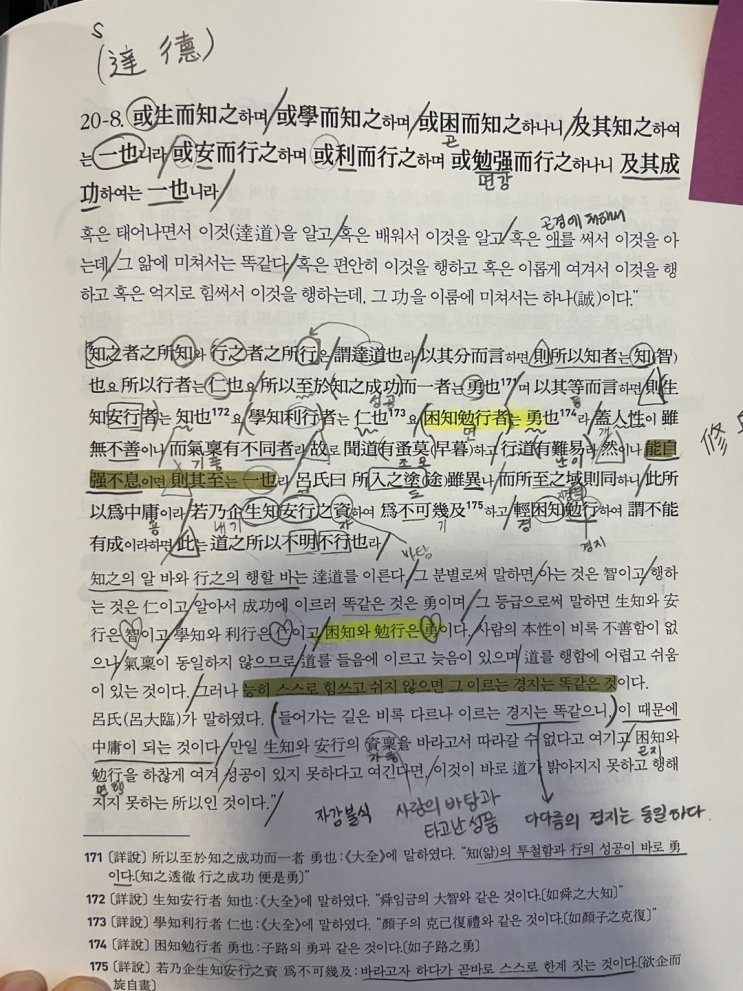 (達 德)
20-8. 或生而知之하며 或學而知之하며 或困而知之하나니 及其知之하여
곤
는 一也니라 或安而行之하며 或利而行之하며 或勉强而行之하나니 及其成
면강
功하여는 一也니라
곤경에 처해서
혹은 태어나면서 이것(達道)을 알고 혹은 배워서 이것을 알고 혹은 애를 써서 이것을 아
는데, 그 앎에 미쳐서는 똑같다. 혹은 편안히 이것을 행하고 혹은 이롭게 여겨서 이것을 행
하고 혹은 억지로 힘써서 이것을 행하는데, 그 功을 이룸에 미쳐서는 하나(誠)이다.”
知之者之所知와 行之者之所行은 謂達道也라 以其分而言하면 則所以知者는 知(智)
也요 所以行者는 仁也요 所以至於知之成功而一者는 勇也171며 以其等而言하면 則生
성공
등
知安行者는 知也172요 學知利行者는 仁也173요 困知勉行者는 勇也174라 蓋人性이 雖
면
개
無不善이나 而氣稟有不同者라 故로 聞道有蚤莫(早暮)하고 行道有難易라 然이나 能自
기품
조모
난이
修
强不息이면 則其至는 一也라 呂氏曰 所入之塗(途)雖異나 而所至之域則同하니 此所
도
以爲中庸이라 若乃企生知安行之資하여 爲不可幾及175하고 輕困知勉行하여 謂不能
용
내기
자
기
경
경지
有成이라하면 此는 道之所以不明不行也라
바탕
知之의 알 바와 行之의 행할 바는 達道를 이른다. 그 분별로써 말하면 아는 것은 智이고 행하
는 것은 仁이고 알아서 成功에 이르러 똑같은 것은 勇이며, 그 등급으로써 말하면 生知와 安
行은 智이고 學知와 利行은 仁이고 困知와 勉行은 勇이다. 사람의 本性이 비록 不善함이 없
으나 氣稟이 동일하지 않으므로 道를 들음에 이르고 늦음이 있으며 道를 행함에 어렵고 쉬움
이 있는 것이다. 그러나 능히 스스로 힘쓰고 쉬지 않으면 그 이르는 경지는 똑같은 것이다.
呂氏(呂大臨)가 말하였다. “들어가는 길은 비록 다르나 이르는 경지는 똑같으니, 이 때문에
中庸이 되는 것이다. 만일 生知와 安行의 資稟을 바라고서 따라갈 수 없다고 여기고 困知와
자품
곤지
勉行을 하찮게 여겨 성공이 있지 못하다고 여긴다면, 이것이 바로 道가 밝아지지 못하고 행해
면행
지지 못하는 所以인 것이다.”
자강불식
사람의 바탕과
타고난 성품
다다름의 경지는 동일하다.
171 〔詳說〕 所以至於知之成功而一者 勇也:《大全》에 말하였다. “知(앎)의 투철함과 行의 성공이 바로 勇
이다.〔知之透徹 行之成功 便是勇〕”
172 〔詳說〕 生知安行者 知也:《大全》에 말하였다. “舜임금의 大智와 같은 것이다.〔如舜之大知〕”
173 〔詳說〕 學知利行者 仁也:《大全》에 말하였다. “顔子의 克己復禮와 같은 것이다.〔如顔子之克復〕”
174 〔詳說〕 困知勉行者 勇也:子路의 勇과 같은 것이다.〔如子路之勇〕
175 〔詳說〕 若乃企生知安行之資 爲不可幾及:바라고자 하다가 곧바로 스스로 한계 짓는 것이다.〔欲企而
旋自畫〕